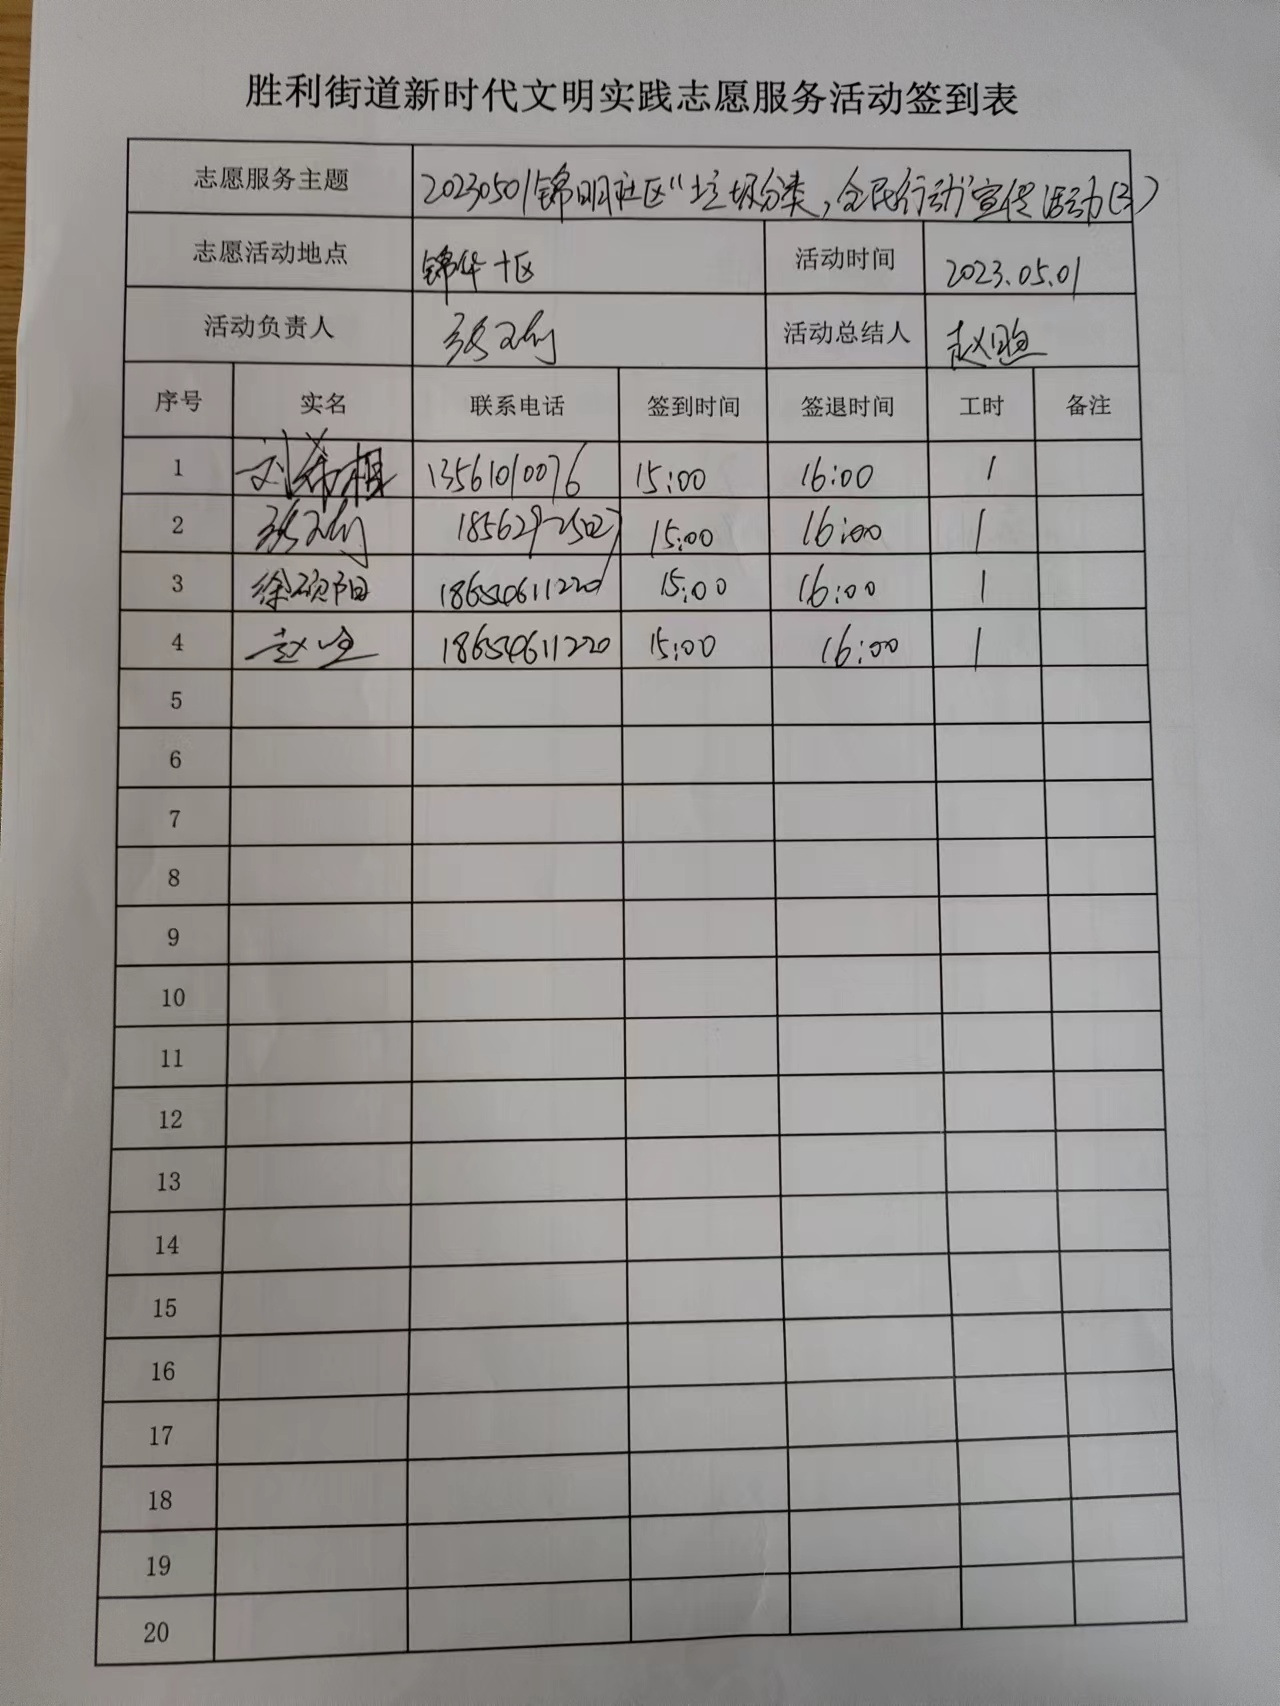 胜利街道新时代文明实践志愿服务活动签到表
志愿服务主题 20230501锦明社区“垃圾分类，全民行动”宣传活动(3)
志愿活动地点 锦华十区 活动时间 2023.05.01
活动负责人 活动总结人 赵
序号 实名 联系电话 签到时间 签退时间 工时 备注
1 刘 13561010076 15:00 16:00 1
2 15:00 16:00 1
3 徐硕阳 18654611220 15:00 16:00 1
4 赵 18654611220 15:00 16:00 1
5
6
7
8
9
10
11
12
13
14
15
16
17
18
19
20